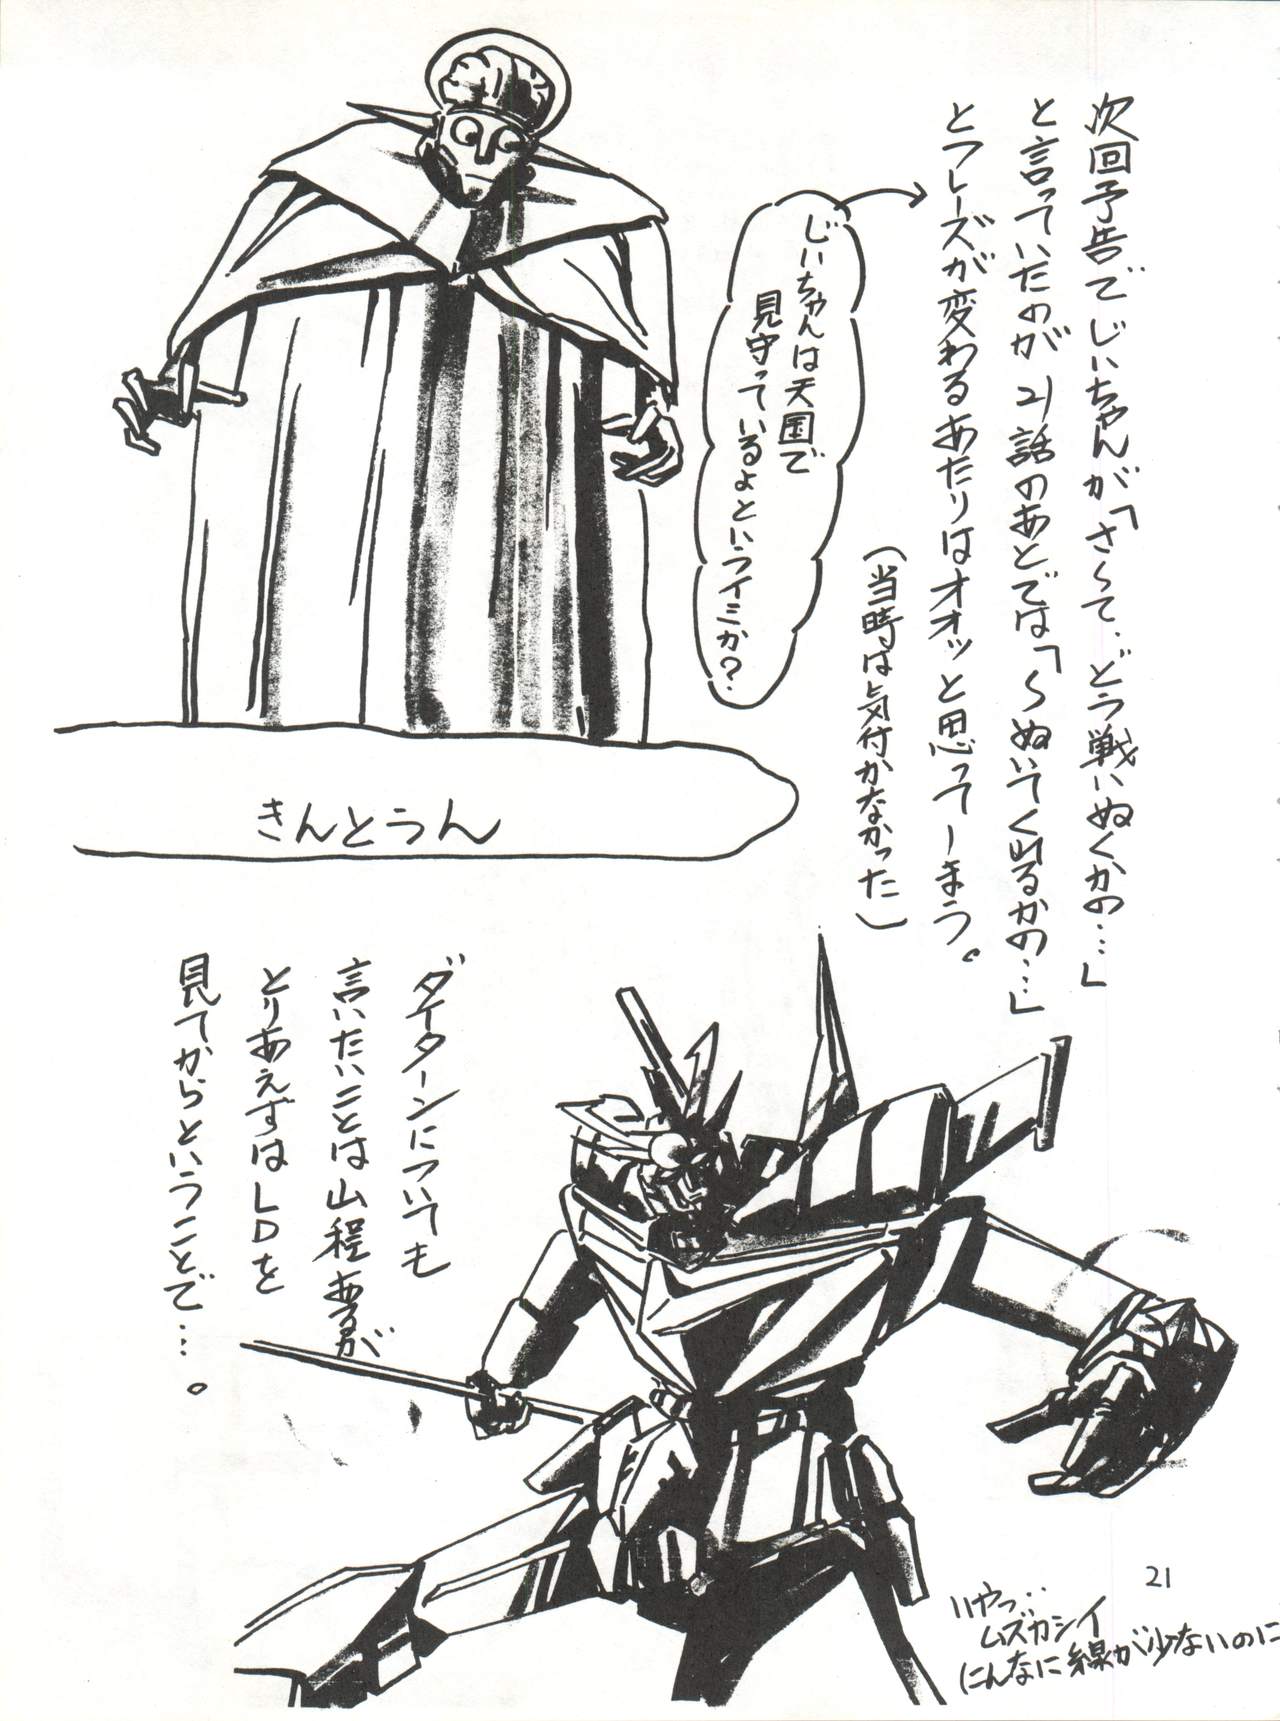 次回予告でじいちゃんが「さ〜て、どう戦いぬくかの…」
と言っていたのが21話のあとでは「〜ぬいてくれるかの…」
とフレーズが変わるあたりはオオッと思ってしまう。
(当時は気付かなかった)
じいちゃんは天国で
見守っているよというイミか?
きんとうん
ダイターンについても
言いたいことは山程あるが
とりあえずはLDを
見てからということで…。
いやっ…
ムズカシイ
こんなに線が少ないのに
21